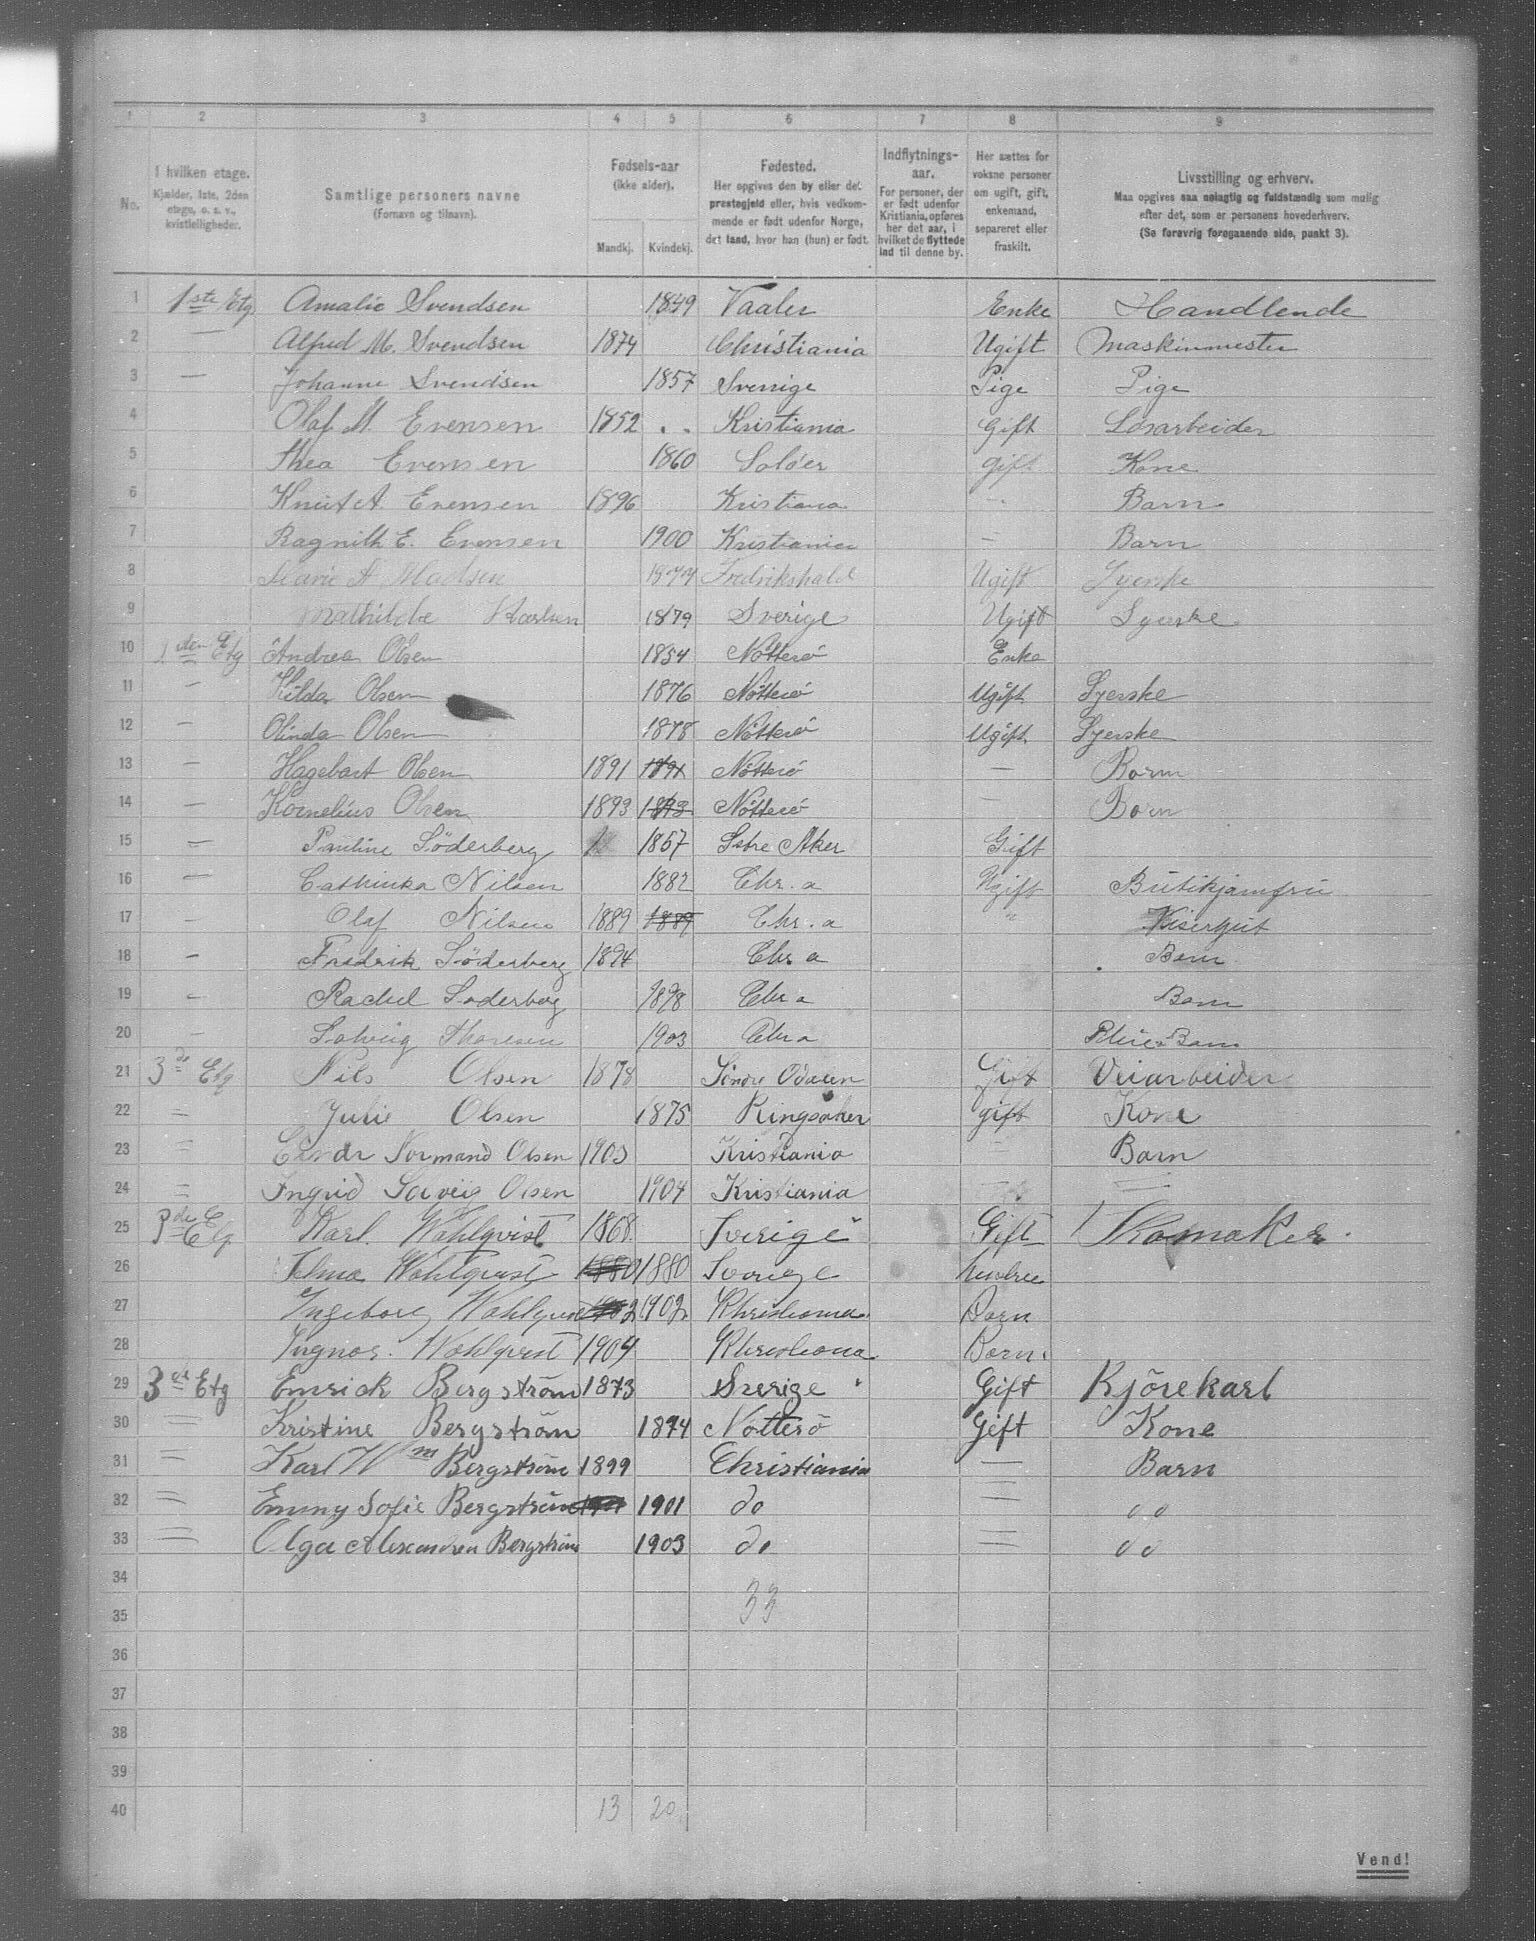 1 2 3 4 5 6 7 8 9
No.
I hvilken etage.
Kjælder, 1ste, 2den etage, o. s. v., kvistleiligheder.
Samtlige personers navne
(Fornavn og tilnavn).
Fødsels-aar
(ikke alder).
Mandkj. Kvindekj.
Fødested.
Her opgives den by eller det præstegjeld eller, hvis vedkommende er født udenfor Norge, det land, hvor han (hun) er født.
Indflytnings-aar.
For personer, der er født udenfor Kristiania, opføres her det aar, i hvilket de flyttede ind til denne by.
Her sættes for voksne personer om ugift, gift, enkemand, separeret eller fraskilt.
Livsstilling og erhverv.
Maa opgives saa nøiagtig og fuldstændig som mulig efter det, som er personens hovederhverv.
(Se forøvrig foregaaende side, punkt 3).
1 1ste Etg Amalie Svendsen 1849 Vaaler Enke Handlende
2 — Alfred M. Svendsen 1874 Christiania Ugift Maskinmester
3 — Johanne Svendsen 1857 Sverrige Pige Pige
4 Olaf M Evensen 1852 . . Kristiania Gift Løsarbeider
5 Thea Evensen 1860 Soløer gift Kone
6 Knut A. Evensen 1896 Kristiana — Barn
7 Ragnith E. Evensen 1900 Kristiania = Barn
8 Marie A Madsen 1877 Fredrikshald Ugift Syerske
9 Mathilde Karlsen 1879 Sverige Ugift Syerske
10 2den Etg Andrea Olsen 1854 Nötterö Enke
11 — Hilda Olsen 1876 Nötterö Ugift Syerske
12 — Olinda Olsen 1878 Nötterö Ugift Syerske
13 — Hagebart Olsen 1891 1891 Nötterö — Barn
14 — Kornelius Olsen 1893 1893 Nötterö — Barn
15 — Pauline Söderberg 1857 Østre Aker Gift
16 — Cathinka Nilsen 1882 Chr. a Ugift Butikjomfru
17 — Olaf Nilsen 1889 1889 Chr. a " Visergut
18 — Fredrik Söderberg 1894 Chr a Barn
19 — Rachel Söderberg 1898 Chr a Barn
20 — Solveig Thoresen 1903 Chr a Pleie Barn
21 3de Etg Nils Olsen 1878 Söndre Odalen Gift Veiarbeider
22 = Julie Olsen 1875 Ringsaker gift Kone
23 = Normand Olsen 1903 Kristiania = Barn
24 = Ingrid Solveig Olsen 1904 Kristiania — —
25 3de Etg Karl. Wahlqvist 1868 Sverige Gift Skomaker.
26 Wahlqvist 1880 1880 Sverige
27 Ingeborg Wahlqvist 1902 1902 Khristiania Barn
28 Ingnar. Wahlqvist 1904 Khristiana Barn.
29 3de Etg Emrick Bergström 1873 Sverige Gift Kjörekarl
30 = Kristine Bergström 1874 Nötterö Gift Kone
31 = Karl Wm Bergström 1899 Christiania — Barn
32 = Emmy Sofie Bergström 1901 1901 do = do
33 = Olga Alexandra Bergström 1903 do = do
34
35 33
36
37
38
39
40 13 20
Vend!